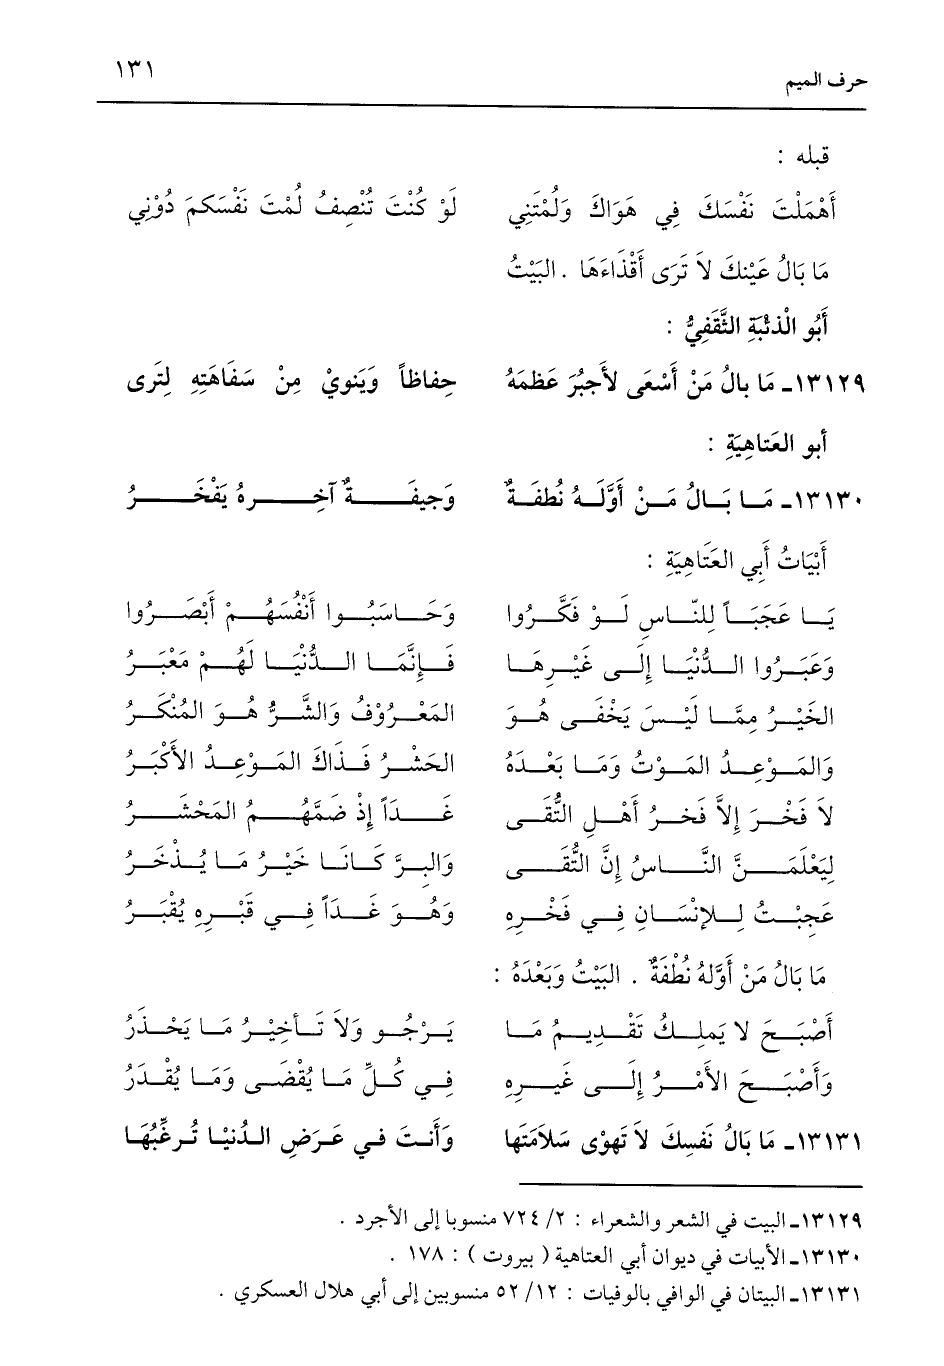 حرف الميم ١٣١
قبله :
أَهْمَلْتَ نَفْسَكَ فِي هَوَاكَ وَلُمْتَنِي لَوْ كُنْتَ تُنْصِفُ لُمْتَ نَفْسَكمَ دُوْنِي
مَا بَالُ عَيْنكَ لاَ تَرَى أَقْذَاءَهَا . البَيْتُ
أَبُو الْذئْبَةِ الثَّقَفِيُّ :
١٣١٢٩ـ مَا بالُ مَنْ أَسْعَى لأَجبُرَ عَظمَهُ حِفاظاً وَيَنويْ مِنْ سَفَاهَتِهِ لِتَرى
أبو العَتاهِيَةِ :
١٣١٣٠ـ مَـا بَـالُ مَـنْ أَوَّلَـهُ نُطفَـةٌ وَجيفَـةٌ آخِـرهُ يَفْخَـرُ
أَبْيَاتُ أَبِي العَتَاهِيَةِ :
يَـا عَجَبَـاً لِلنَّـاسِ لَـوْ فَكَّـرُوا وَحَـاسَبُـوا أَنْفُسَهُـمْ أَبْصَـرُوا
وَعَبَـرُوا الـدُّنْيَـا إِلَـى غَيْـرِهَـا فَـإِنَّمَـا الـدُّنْيَـا لَهُـمْ مَعْبَـرُ
الخَيْـرُ مِمَّـا لَيْـسَ يَخْفَـى هُـوَ المَعْـرُوْفُ وَالشَّـرُّ هُـوَ المُنْكَـرُ
وَالمَـوْعِـدُ المَـوْتُ وَمَـا بَعْـدَهُ الحَشْـرُ فَـذَاكَ المَـوْعِـدُ الأَكْبَـرُ
لاَ فَخْـرَ إِلاَّ فَخـرُ أَهْـلِ التُّقَـى غَـدَاً إِذْ ضَمَّهُـمُ المَحْشَـرُ
لِيَعْلَمَـنَّ النَّـاسُ إِنَّ التُّقَـى وَالبِـرَّ كَـانَـا خَيْـرُ مَـا يُـذْخَـرُ
عَجِبْـتُ لِـلإنْسَـانِ فِـي فَخْـرِهِ وَهُـوَ غَـدَاً فِـي قَبْـرِهِ يُقْبَـرُ
مَا بَالُ مَنْ أَوَّلهُ نُطفَةٌ . البَيْتُ وَبَعْدَهُ :
أَصْبَـحَ لا يَملِـكُ تَقْـدِيـمُ مَـا يَـرْجُـو وَلاَ تَـأخِيْـرُ مَـا يَحْـذَرُ
وَأَصْبَـحَ الأَمْـرُ إِلَـى غَيـرِهِ فِـي كُـلِّ مَـا يُقْضَـى وَمَـا يُقْـدَرُ
١٣١٣١ـ مَا بَالُ نَفسِكَ لاَ تَهوْى سَلاَمَتَها وَأَنـتَ فـي عَـرَضِ الـدُنيْـا تُـرغِّبُهَـا
١٣١٢٩ـ البيت في الشعر والشعراء : ٢/ ٧٢٤ منسوبا إلى الأجرد .
١٣١٣٠ـ الأبيات في ديوان أبي العتاهية ( بيروت ) : ١٧٨ .
١٣١٣١ـ البيتان في الوافي بالوفيات : ١٢/ ٥٢ منسوبين إلى أبي هلال العسكري .